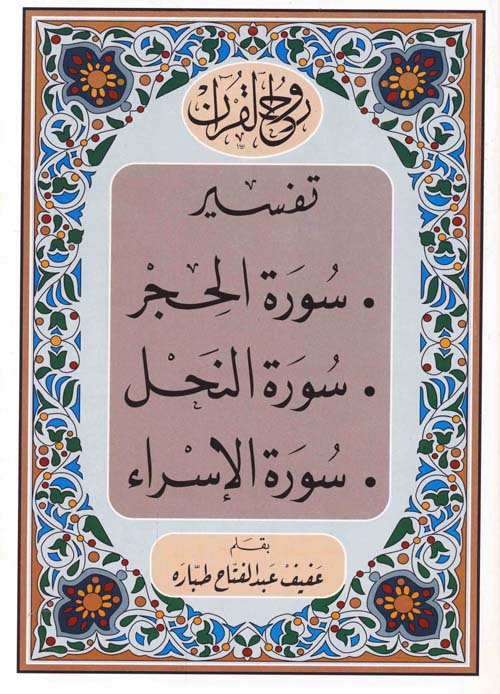 روح القرآن
تفسير
• سُورَة الحِجْر
• سُورَة النَحْل
• سُورَة الإسْراء
بقلم
عفيف عبد الفتاح طبّاره